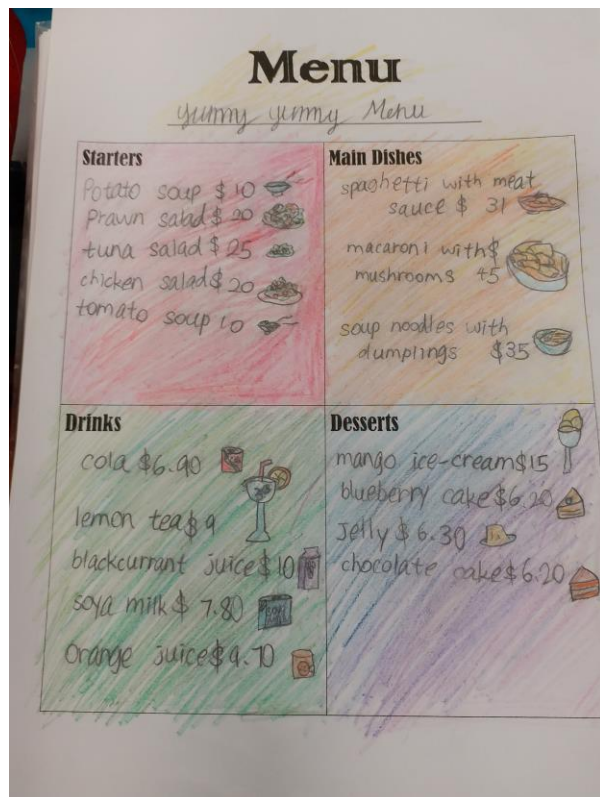 Menu
yummy yummy Menu
Starters
Potato soup $ 10
Prawn salad $ 20
tuna salad $ 25
chicken salad $ 20
tomato soup 10
Main Dishes
spaghetti with meat
sauce $ 31
macaroni with $
mushrooms 45
soup noodles with
dumplings $35
Drinks
cola $6.90
lemon tea $ 9
blackcurrant juice $ 10
soya milk $ 7.80
Orange juice $ 9.70
Desserts
mango ice-cream $15
blueberry cake $6.20
Jelly $ 6.30
chocolate cake $6.20